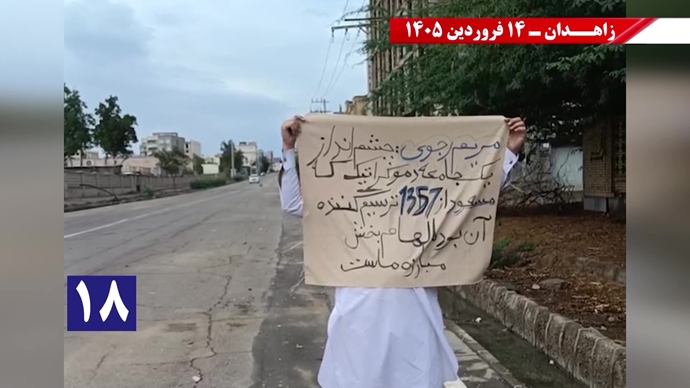 زاهدان ـ ۱۴ فروردین ۱۴۰۵
مریم رجوی: چشم‌انداز
یک جامعه دموکراتیک که
مسعود از 1357 ترسیم کننده
آن بود الهام بخش
مبارزه ماست
۱۸